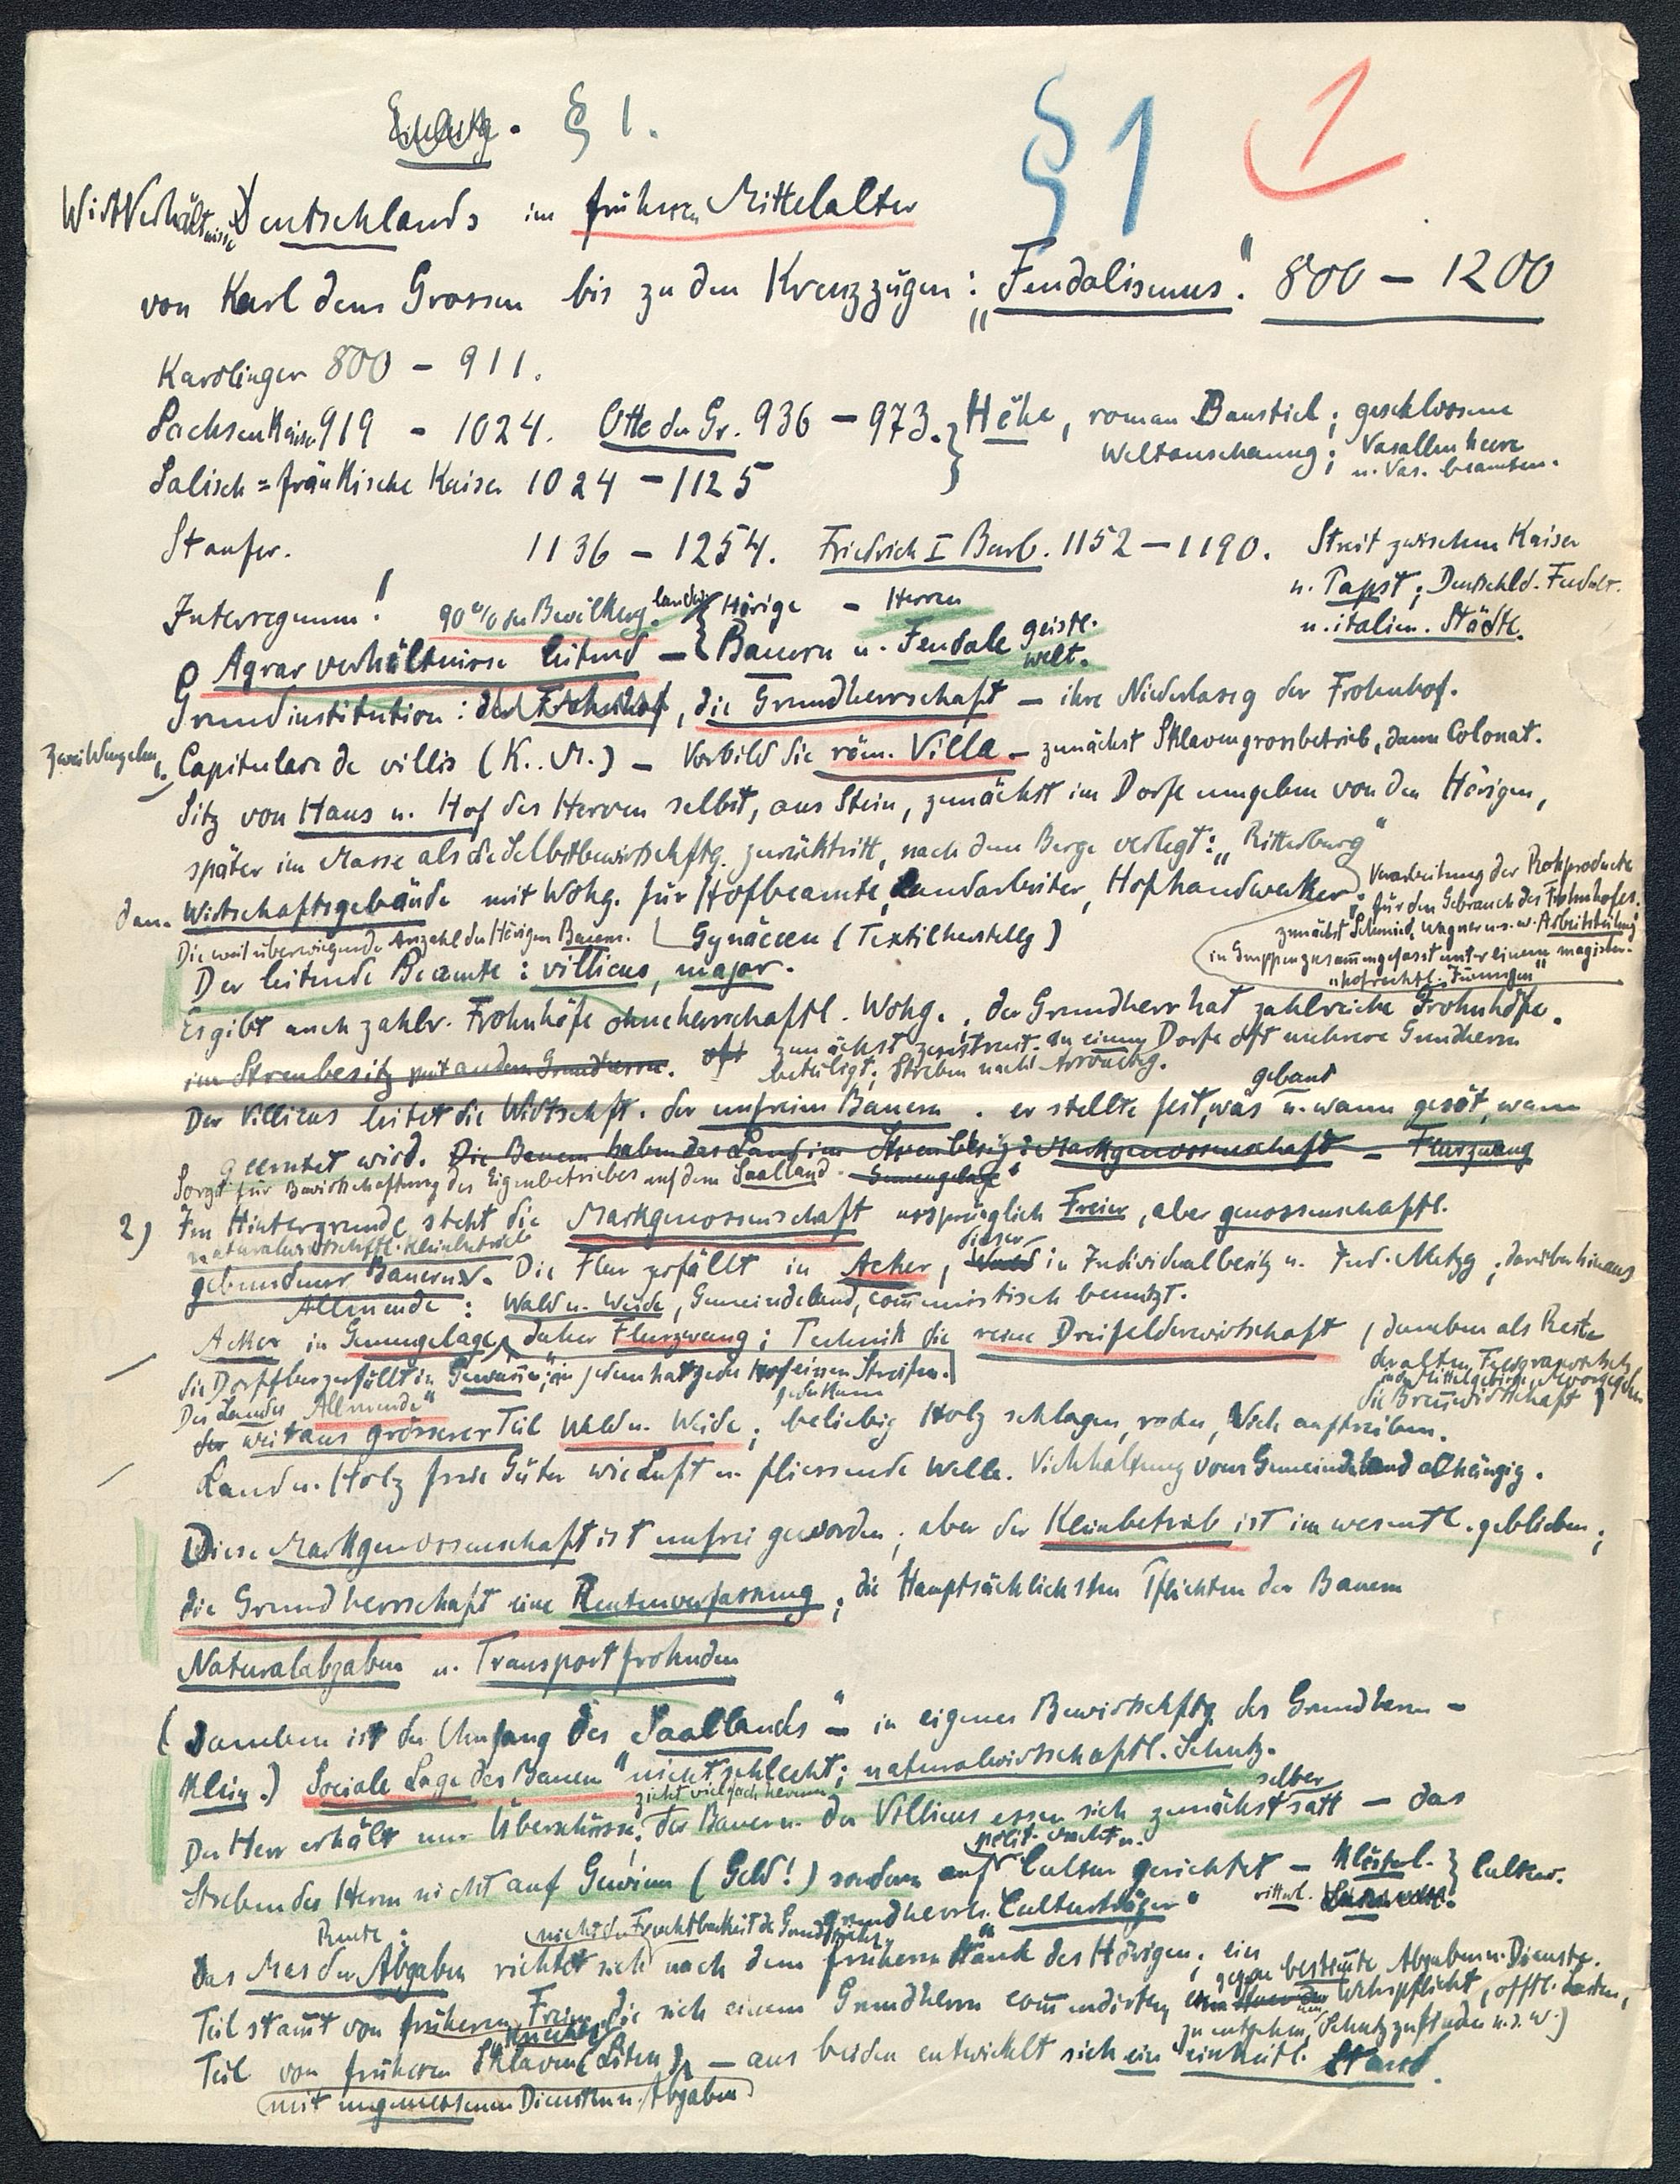 § 1.
§ 1 1
WirtVerhältnisse Deutschlands im früheren Mittelalter
von Karl dem Grossen bis zu den Kreuzzügen: „Feudalismus". 800 – 1200
Karolinger 800 – 911.
SachsenKaiser 919 – 1024. Otto der Gr. 936 – 973. } Höhe, roman Baustiel; geschlossene
Weltanschauung; Vasallenheere
u. Vas. beamten.
Salisch=fränkische Kaiser 1024 – 1125
Staufer. 1136 – 1254. Friedrich I Barb. 1152 – 1190. Streit zwischen Kaiser
u. Papst; Deutschld. Feudalt.
u. italien. Städte.
Interregnum! 90% der Bevölkerg. Hörige – Herren
Agrarverhältnisse leitend – { Bauern u. Feudale geistl.
welt.
Grundinstitution: der Frohnhof, die Grundherrschaft – ihre Niederlassg der Frohnhof.
Capitulare de villis (K. M.) – Vorbild die röm. Villa – zunächst Sklavengrossbetrieb, dann Colonat.
Sitz von Haus u. Hof des Herren selbst, aus Stein, zunächst im Dorfe umgeben von den Hörigen,
später im Masse als die Selbstbewirtschftg. zurücktritt, nach dem Berge verlegt: „Ritterburg"
dan. Wirtschaftsgebäude mit Wohg. für Hofbeamte, Landarbeiter, Hofhandwerker; Verarbeitung der Rohproducte
für den Gebrauch des Frohnhofes.
zunächst Schmied, Wagner u.s.w. Arbeitsteilung
in Gruppen zusammengefasst unter einem magister.
„hofrechtl. Innungen"
Die weit überwiegende Anzahl der Hörigen Bauern. Gynäceen (Textilherstellg)
Der leitende Beamte: villicus, major.
Es gibt auch zahlr. Frohnhöfe ohne herrschaftl. Wohg., der Grundherr hat zahlreiche Frohnhöfe.
im Streubesitz mit andern Grundherrn. oft zunächst zerstreut; an einem Dorfe oft mehrere Grundherrn
beteiligt; Streben nach Arrondig.
Der Villicus leitet die Wirtschft. der unfreien Bauern. er stellte fest, was gebaut u. wann gesät, wann
geerntet wird. Die Bauern haben das Land im Streubesitz: Markgenossenschaft – Flurzwang
Sorgt für Bewirtschaftung des Eigenbetriebes auf dem Saalland. Gemengelage
2) Im Hintergrunde steht die Markgenossenschaft ursprünglich Freier, aber genossenschaftl.
naturalwirtschaftl. Kleinbetrieb
gebundener Bauern. Die Flur zerfällt in Acker, dieser in Individualbesitz u. Ind. Nutzg; darüber hinaus
Allmende: Wald u. Weide, Gemeindeland, communistisch benutzt.
Acker in Gemengelage, daher Flurzwang; Technik die reine Dreifelderwirtschaft, daneben als Reste
der alten Feldgraswirtsch.
die Brennwirtschaft
die Dorfflur zerfällt in „Gewanne", in jedem hat jeder Hof einen Streifen.
Des Landes „Allmende"
der weitaus grösserer Teil Wald u. Weide; jeder kann beliebig Holz schlagen, roden, Vieh auftreiben.
Land u. Holz freie Güter wie Luft u. fliessende Welle. Viehhaltung vom Gemeindeland abhängig.
Diese Markgenossenschaft ist unfrei geworden; aber der Kleinbetrieb ist im wesentl. geblieben;
die Grundherrschaft eine Rentenverfassung; die Hauptsächlichsten Pflichten der Bauern
Naturalabgaben u. Transportfrohnden
(daneben ist der Umfang des Saallands – in eigener Bewirtschftg des Grundherrn –
klein.) Sociale Lage des Bauern nicht schlecht; naturalwirtschaftl. Schutz.
zieht vielfach herum
Der Herr erhält nur Überschüsse; der Bauer u. der Villicus essen sich zunächst selber satt – das
Streben des Herrn nicht auf Gewinn (Geld!) sondern auf polit. Macht u. Cultur gerichtet – Klösterl.
ritterl. } Cultur.
grundherrl. „Culturträger"
Rente: nicht der Fruchtbarkeit des Grundstücks,
Das Mas der Abgaben richtet sich nach dem früheren Stande des Hörigen; ein
Teil stamt von früheren Freien, die sich einem Grundherrn commendirten gegen bestimte Abgaben u. Dienste.
um der Wehrpflicht, öfftl. Lasten,
zu entgehen, Schutz zu finden u.s.w.)
Teil von früheren Sklaven (Liten) – aus beiden entwickelt sich ein einheitl. Stand.
(mit ungemessenen Diensten u. Abgaben)